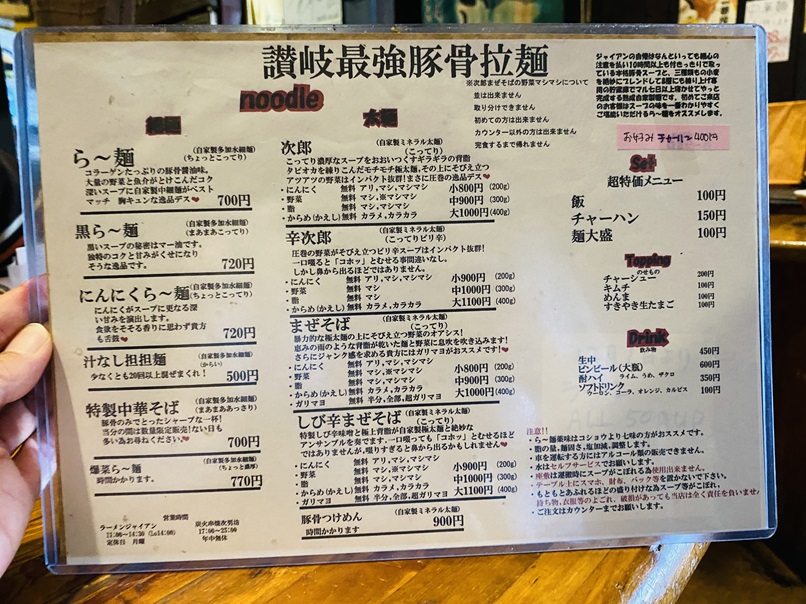 讃岐最強豚骨拉麺
noodle
細麺
ら〜麺
(自家製多加水細麺)
(ちょっとこってり)
コラーゲンたっぷりの豚骨醤油味。
大量の野菜と魚介がとけこんだコク
深いスープに自家製中細麺がベスト
マッチ 胸キュンな逸品デス♥
700円
黒ら〜麺
(自家製多加水細麺)
(まあまあこってり)
黒いスープの秘密はマー油です。
独特のコクと甘みがくせになり
そうな逸品です。
720円
にんにくら〜麺
(自家製多加水細麺)
(ちょっとこってり)
にんにくがスープに更なる深
い甘みを演出します。
食欲をそそる香りに思わず貴方
も舌鼓♥
720円
汁なし担担麺
(自家製多加水細麺)
(からい)
少なくとも20回以上混ぜまくれ!
500円
特製中華そば
(自家製多加水細麺)
(まあまああっさり)
豚骨のみでとったシャープな一杯!
当分の間は数量限定販売!ない日も
多い為お尋ねください。♥
700円
爆菜ら〜麺
(自家製多加水細麺)
(ちょっと濃厚)
時間かかります。
770円
営業時間
ラーメンジャイアン
11:00〜14:30 (Lo14:00)
定休日 月曜
炭火串焼夜男坊
17:00〜25:00
年中無休
太麺
※次郎まぜそばの野菜マシマシについて
並は出来ません
取り分けできません
初めての方は出来ません
カウンター以外の方は出来ません
完食するまで帰れません
次郎
(自家製ミネラル太麺)
(こってり)
こってり濃厚なスープをおおいつくすギラギラの背脂
タピオカを練りこんだモチモチ極太麺、その上にそびえ立つ
アツアツの野菜はインパクト抜群!まさに圧巻の逸品デス♥
・にんにく 無料 アリ,マシ,マシマシ 小800円 (200g)
・野菜 無料 マシ,※マシマシ 中900円 (300g)
・脂 無料 マシ,マシマシ
・からめ(かえし) 無料 カラメ,カラカラ 大1000円 (400g)
辛次郎
(自家製ミネラル太麺)
(こってりピリ辛)
圧巻の野菜がそびえ立つピリ辛スープはインパクト抜群!
一口啜ると「コホッ」とむせる事間違いなし。
しかし鼻から出るほどではありません。
・にんにく 無料 アリ,マシ,マシマシ 小900円 (200g)
・野菜 無料 マシ 中1000円 (300g)
・脂 無料 マシ,マシマシ
・からめ(かえし) 無料 カラメ,カラカラ 大1100円 (400g)
まぜそば
(自家製ミネラル太麺)
(こってり)
暴力的な極太麺の上にそびえ立つ野菜のオアシス!
恵みの雨のような背脂が乾いた麺と野菜に息吹を吹き込みます!
さらにジャンク感を求める貴方にはガリマヨがおススメです!♥
・にんにく 無料 アリ,マシ,マシマシ 小800円 (200g)
・野菜 無料 マシ,※マシマシ
・脂 無料 マシ,マシマシ 中900円 (300g)
・からめ(かえし) 無料 カラメ,カラカラ
・ガリマヨ 無料 半分,全部,超ガリマヨ 大1000円 (400g)
しび辛まぜそば
(自家製ミネラル太麺)
(こってり)
特製しび辛味噌と極上背脂が自家製極太麺と絶妙な
アンサンブルを奏でます。一口啜っても「コホッ」とむせるほど
ではありませんが、啜りすぎると鼻から出るかもしれません♥
・にんにく 無料 アリ,マシ,マシマシ
・野菜 無料 マシ,※マシマシ 小900円 (200g)
・脂 無料 マシ,マシマシ 中1000円 (300g)
・からめ(かえし) 無料 カラメ,カラカラ
・ガリマヨ 無料 半分,全部,超ガリマヨ 大1100円 (400g)
豚骨つけめん
(自家製ミネラル太麺)
時間かかります
900円
ジャイアンの自慢はなんといっても細心の
注意を払い10時間以上も付きっきりで取っ
ている本格豚骨スープと、三種類もの小麦
を絶妙にブレンドして8層にも練り上げ専
用の貯蔵庫でマル七日以上寝かせてやっと
完成する熟成自家製麺です。初めてご来店
のお客様はスープの味を一番わかりやすく
ご堪能いただけるら〜麺をオススメします。
お好みチャーハン 400円
Set
超特価メニュー
飯 100円
チャーハン 150円
麺大盛 100円
Topping
のせもの
チャーシュー 200円
キムチ 100円
めんま 100円
すきやき生たまご 100円
Drink
飲み物
生中 450円
ビンビール(大瓶) 600円
酎ハイ ライム、うめ、ザクロ 350円
ソフトドリンク
ウーロン、コーラ、オレンジ、カルピス 100円
注意!!
・ら〜麺薬味はコショウより七味の方がおススメです。
・脂の量、麺固さ、塩加減、調整します。
・車を運転する方にはアルコール類の販売できません。
・水はセルフサービスでお願いします。
・座敷は運搬時にスープがこぼれる為使用出来ません。
・テーブル上にスマホ、財布、バック等を置かないで下さい。
・もともとあふれるほどの盛り付けな為スープ等がこぼれ、
持ち物、衣服等のよごれ、破損があっても当店は全く責任を負いません
・ご注文はカウンターまでお願いします。